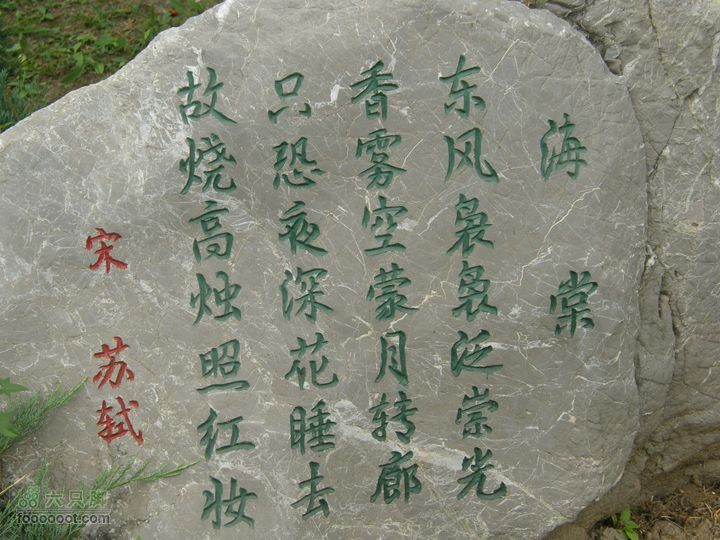 海棠
东风袅袅泛崇光
香雾空蒙月转廊
只恐夜深花睡去
故烧高烛照红妆
宋 苏轼
六只脚
foooooot.com